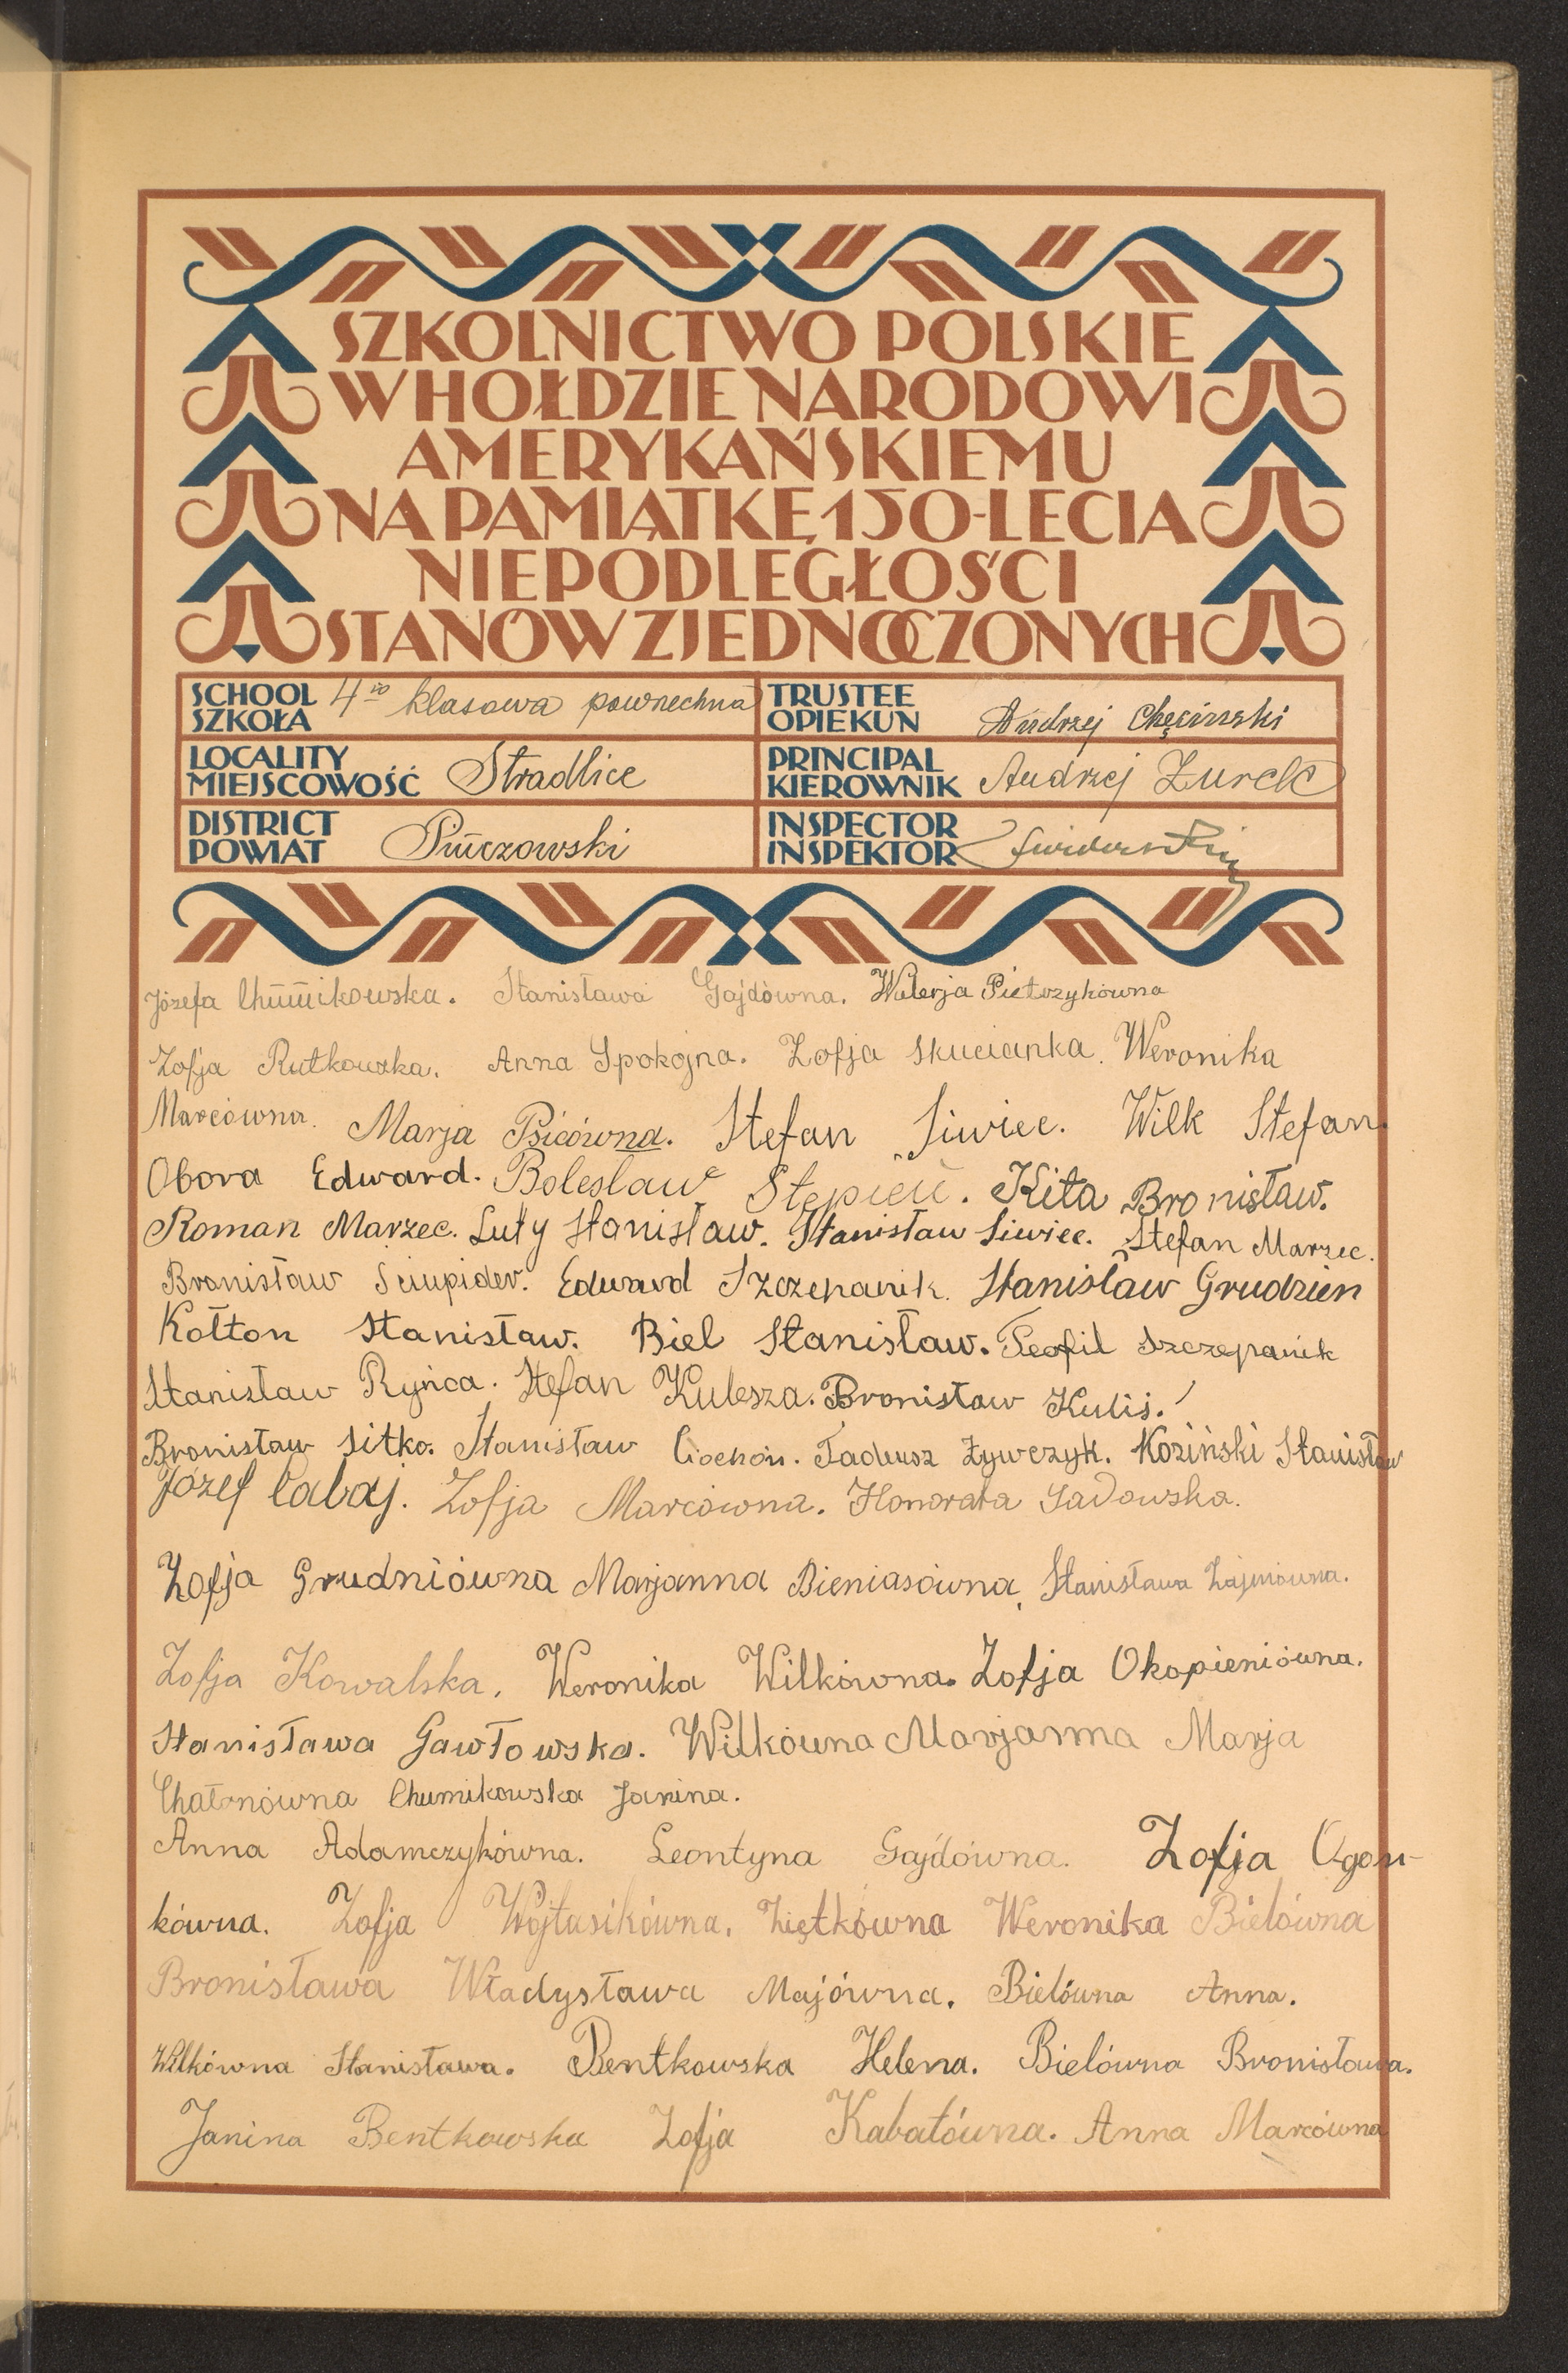 SZKOLNICTWO POLSKIE
W HOŁDZIE NARODOWI
AMERYKAŃSKIEMU
NA PAMIĄTKĘ 150-LECIA
NIEPODLEGŁOŚCI
STANÓW ZJEDNOCZONYCH
SCHOOL
SZKOŁA 4ro klasowa powszechna
TRUSTEE
OPIEKUN Andrzej Chęciński
LOCALITY
MIEJSCOWOŚĆ Stradlice
PRINCIPAL
KIEROWNIK Andrzej Żurek
DISTRICT
POWIAT Pińczowski
INSPECTOR
INSPEKTOR
Józefa Chumikowska. Stanisława Gajdówna. Walerja Pietrzykówna
Zofja Rutkowska. Anna Spokojna. Zofja Skucianka. Weronika
Marcówna. Marja Psicówna. Stefan Siwiec. Wilk Stefan.
Obora Edward. Bolesław Stępień. Kita Bronisław.
Roman Marzec. Luty Stanisław. Stanisław Siwiec. Stefan Marzec.
Bronisław Sciupider. Edward Szczepanik. Stanisław Grudzien
Kołton Stanisław. Biel Stanisław. Teofil Szczepanik
Stanisław Ryńca. Stefan Kulesza. Bronisław Kuliś.
Bronisław Sitko. Stanisław Cichoń. Tadeusz Żywczyk. Koziński Stanisław
Józef Cabaj. Zofja Marcówna. Honorata Sadowska.
Zofja Grudniówna Marjanna Bieniasówna, Stanisława Zajmówna.
Zofja Kowalska. Weronika Wilkówna. Zofja Okopieniówna.
Stanisława Gawłowska. Wilkówna Marjanna Marja
Chałonówna Chumikowska Janina.
Anna Adamczykówna. Leontyna Gajdówna. Zofja Ogon-
kówna. Zofja Wojtasikówna. Ziętkówna Weronika Bielówna
Bronisława Władysława Majówna. Bielówna Anna.
Wilkówna Stanisława. Bentkowska Helena. Bielówna Bronisława.
Janina Bentkowska Zofja Kabatówna. Anna Marcówna